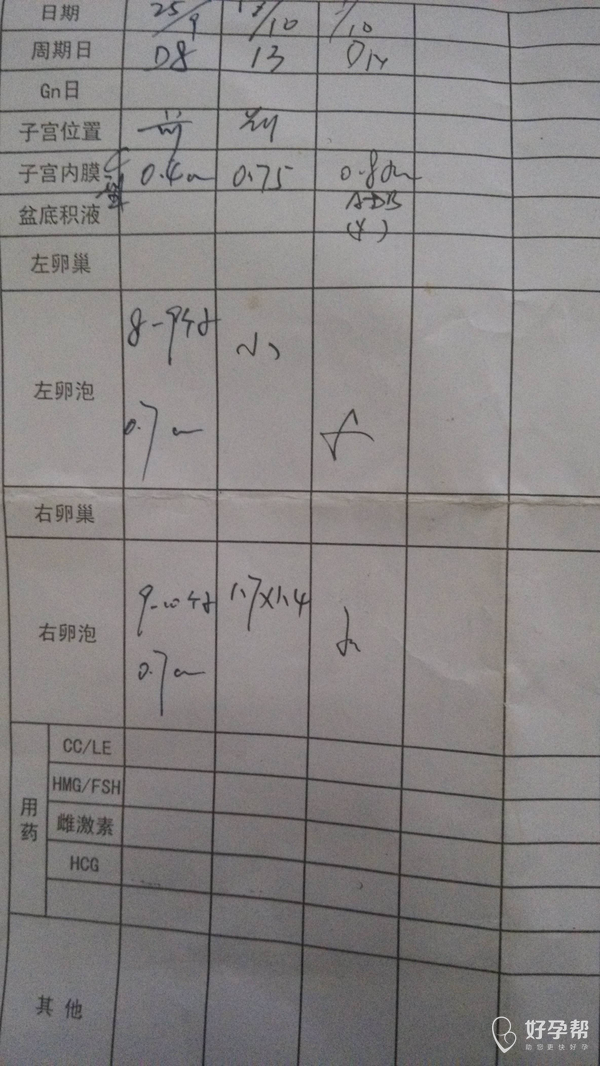 日期 25/9 /10 /10
周期日 D8 13
Gn日
子宫位置 前 前
子宫内膜 0.4cm 0.75 0.8cm
盆底积液
左卵巢
8-9个
左卵泡 小
0.7cm
右卵巢
9-10个 1.7X1.4
右卵泡
0.7cm
用药
CC/LE
HMG/FSH
雌激素
HCG
其他
好孕帮
助您更快好孕